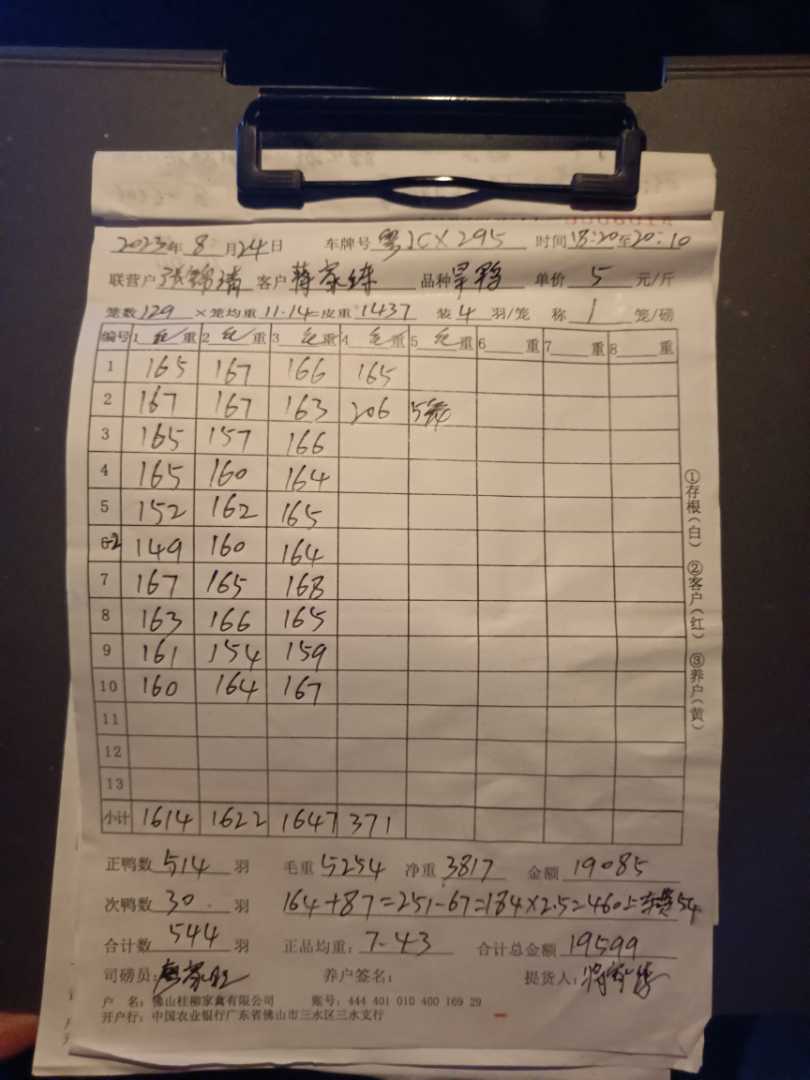 2023年 8 月 24日 车牌号 粤JCX295 时间 18:20至20:10
联营户 张锦 客户 蒋家 品种 旱鸭 单价 5 元/斤
笼数 129 ×笼均重 11.14=皮重 1437 装 4 羽/笼 称 1 笼/磅
编号 1 毛/重 2 毛/重 3 毛重 4 毛重 5 毛重 6 重 7 重 8 重
1 165 167 166 165
2 167 167 163 206 5笼
3 165 157 166
4 165 160 164
5 152 162 165
6-2 149 160 164
7 167 165 168
8 163 166 165
9 161 154 159
10 160 164 167
11
12
13
小计 1614 1622 1647 371
正鸭数 514 羽 毛重 5254 净重 3817 金额 19085
次鸭数 30. 羽 164+87=251-67=184×2.5=460 54
合计数 544 羽 正品均重: 7.43 合计总金额 19599
司磅员: 养户签名: 提货人:
户 名: 佛山桂柳家禽有限公司 账号: 444 401 010 400 169 29
开户行: 中国农业银行广东省佛山市三水区三水支行
①存根(白) ②客户(红) ③养户(黄)